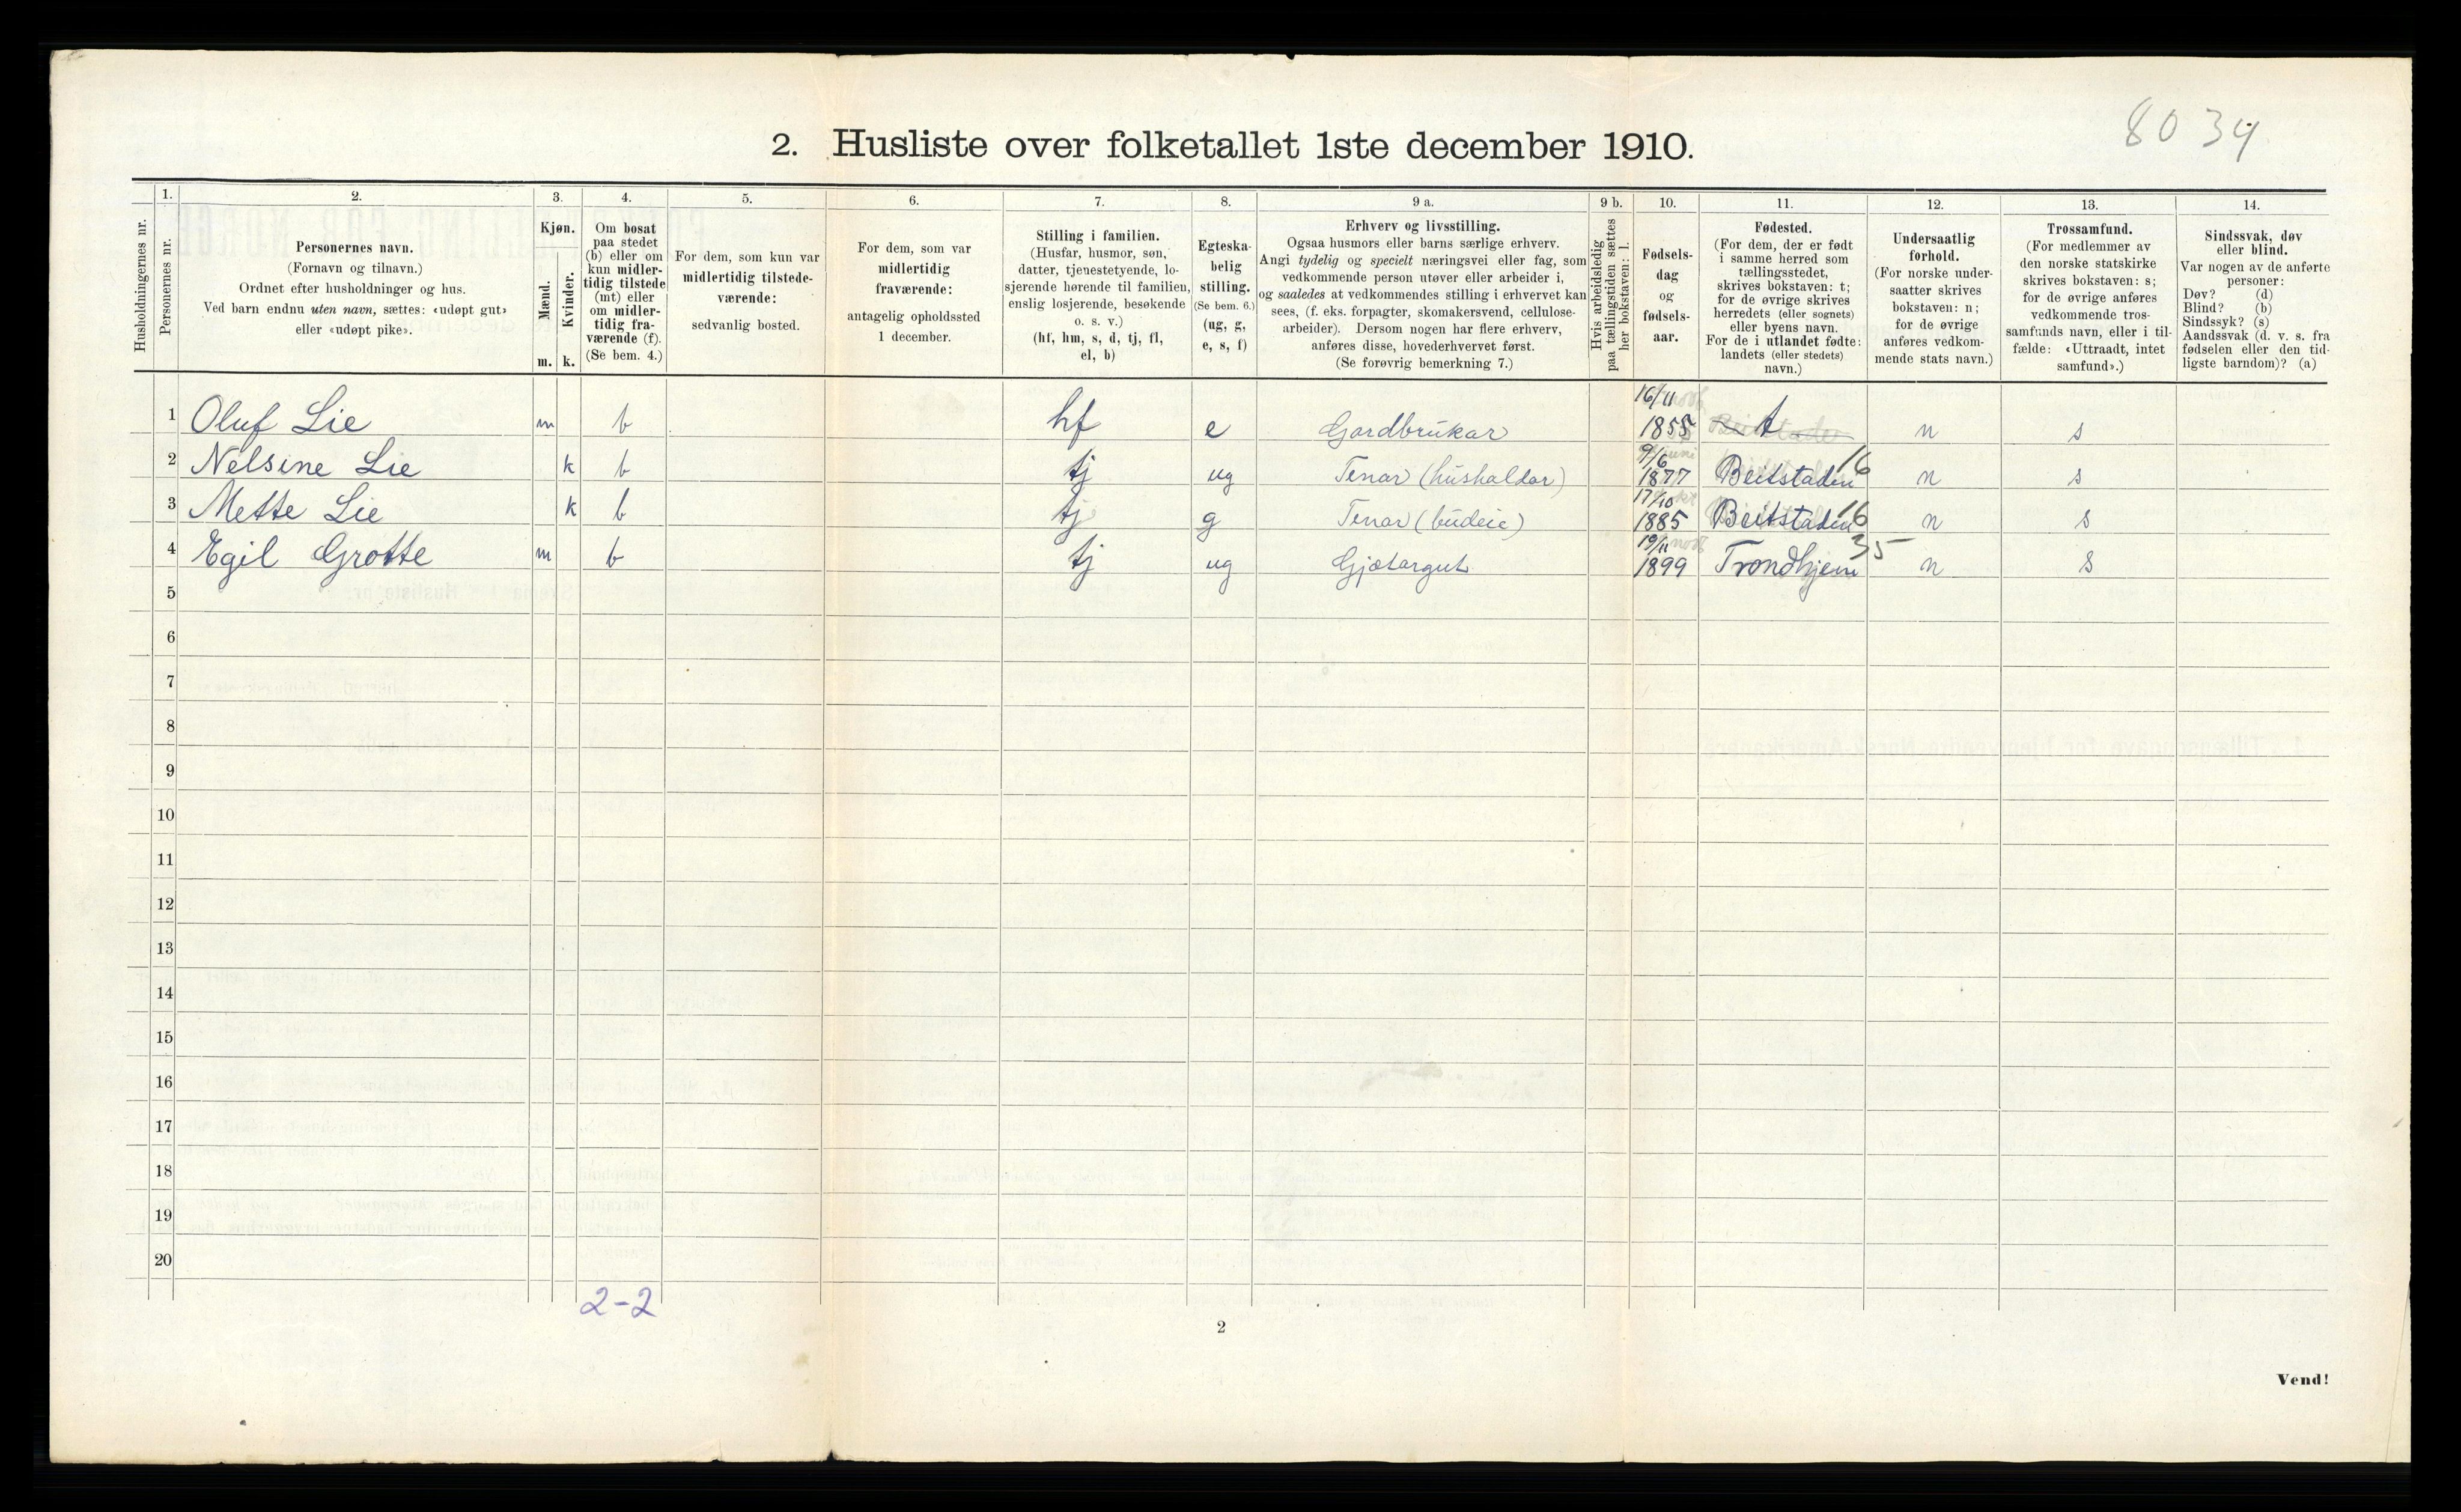 80 34
2. Husliste over folketallet 1ste december 1910.
Husholdningernes nr.
1.
Personernes nr.
2.
Personernes navn.
(Fornavn og tilnavn.)
Ordnet efter husholdninger og hus.
Ved barn endnu uten navn, sættes: «udøpt gut»
eller «udøpt pike».
3.
Kjøn.
Mænd.
Kvinder.
m. k.
4.
Om bosat
paa stedet
(b) eller om
kun midler-
tidig tilstede
(mt) eller
om midler-
tidig fra-
værende (f).
(Se bem. 4.)
5.
For dem, som kun var
midlertidig tilstede-
værende:
sedvanlig bosted.
6.
For dem, som var
midlertidig
fraværende:
antagelig opholdssted
1 december.
7.
Stilling i familien.
(Husfar, husmor, søn,
datter, tjenestetyende, lo-
sjerende hørende til familien,
enslig losjerende, besøkende
o. s. v.)
(hf, hm, s, d, tj, fl,
el, b)
8.
Egteska-
belig
stilling.
(Se bem. 6.)
(ug, g,
e, s, f)
9 a.
Erhverv og livsstilling.
Ogsaa husmors eller barns særlige erhverv.
Angi tydelig og specielt næringsvei eller fag, som
vedkommende person utøver eller arbeider i,
og saaledes at vedkommendes stilling i erhvervet kan
sees, (f. eks. forpagter, skomakersvend, cellulose-
arbeider). Dersom nogen har flere erhverv,
anføres disse, hovederhvervet først.
(Se forøvrig bemerkning 7.)
9 b.
Hvis arbeidsledig
paa tællingstiden sættes
her bokstaven: l.
10.
Fødsels-
dag
og
fødsels-
aar.
11.
Fødested.
(For dem, der er født
i samme herred som
tællingsstedet,
skrives bokstaven: t;
for de øvrige skrives
herredets (eller sognets)
eller byens navn.
For de i utlandet fødte:
landets (eller stedets)
navn.)
12.
Undersaatlig
forhold.
(For norske under-
saatter skrives
bokstaven: n;
for de øvrige
anføres vedkom-
mende stats navn.)
13.
Trossamfund.
(For medlemmer av
den norske statskirke
skrives bokstaven: s;
for de øvrige anføres
vedkommende tros-
samfunds navn, eller i til-
fælde: «Uttraadt, intet
samfund».)
14.
Sindssvak, døv
eller blind.
Var nogen av de anførte
personer:
Døv? (d)
Blind? (b)
Sindssyk? (s)
Aandssvak (d. v. s. fra
fødselen eller den tid-
ligste barndom)? (a)
1 Oluf Lie m b hf e Gardbrukar 16/11 1855 t n s
2 Nelsine Lie k b tj ug Tenar (hushaldar) 9/6 1877 Beitstaden 16 n s
3 Mette Lie k b tj g Tenar (budeie) 17/10 1885 Beitstaden 16 n s
4 Egil Grotte m b tj ug Gjætargut 19/11 1899 Trondhjem 35 n s
5
6
7
8
9
10
11
12
13
14
15
16
17
18
19
20
2-2
2
Vend!